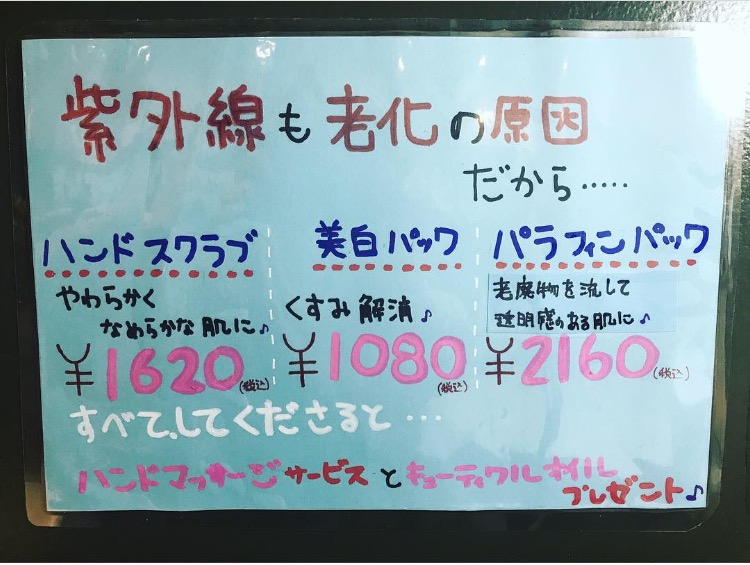 紫外線も老化の原因
だから・・・・・
ハンドスクラブ
やわらかく
なめらかな肌に♪
¥1620(税込)
美白パック
くすみ解消♪
¥1080(税込)
パラフィンパック
老廃物を流して
透明感のある肌に♪
¥2160(税込)
すべて、してくださると・・・
ハンドマッサージサービスとキューティクルオイル
プレゼント♪